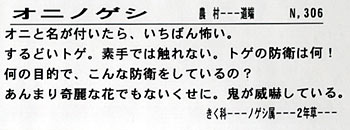 オニノゲシ 農 村---道端 N,306
オニと名が付いたら、いちばん怖い。
するどいトゲ。素手では触れない。トゲの防衛は何！
何の目的で、こんな防衛をしているの？
あんまり奇麗な花でもないくせに。鬼が威嚇している。
きく科---ノゲシ属---2年草---